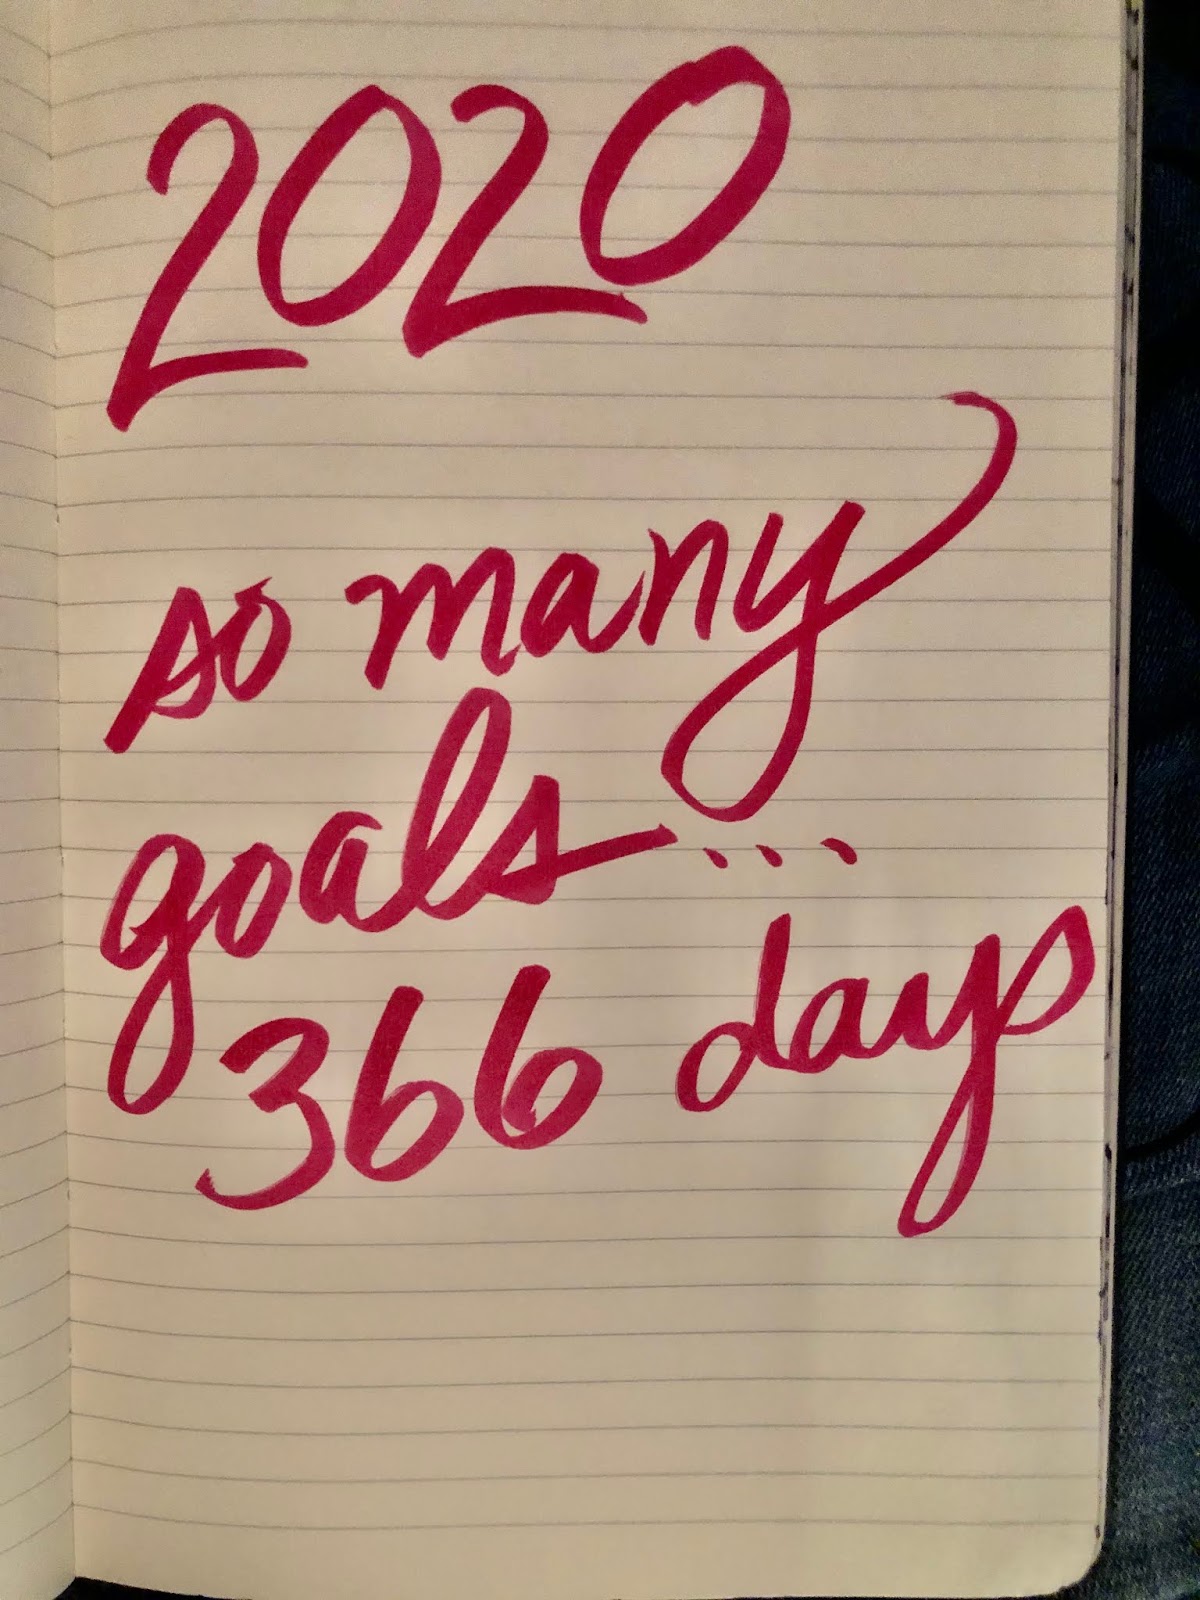 2020
so many
goals...
366 days